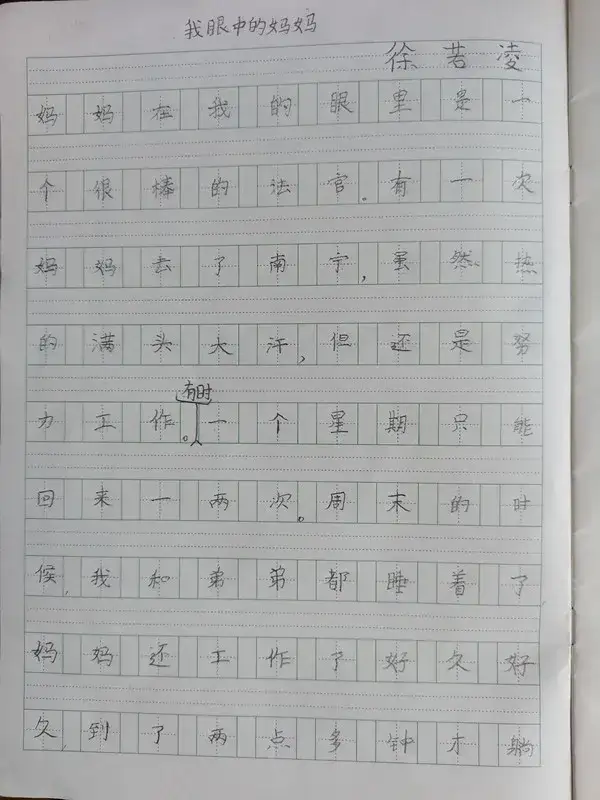 我眼中的妈妈
徐若凌
妈妈在我的眼里是一
个很棒的法官。有一次
妈妈去了南宁,虽然热
的满头大汗,但还是努
力工作。有时一个星期只能
回来一两次。周末的时
候,我和弟弟都睡着了
妈妈还工作了好久好
久,到了两点多钟才躺